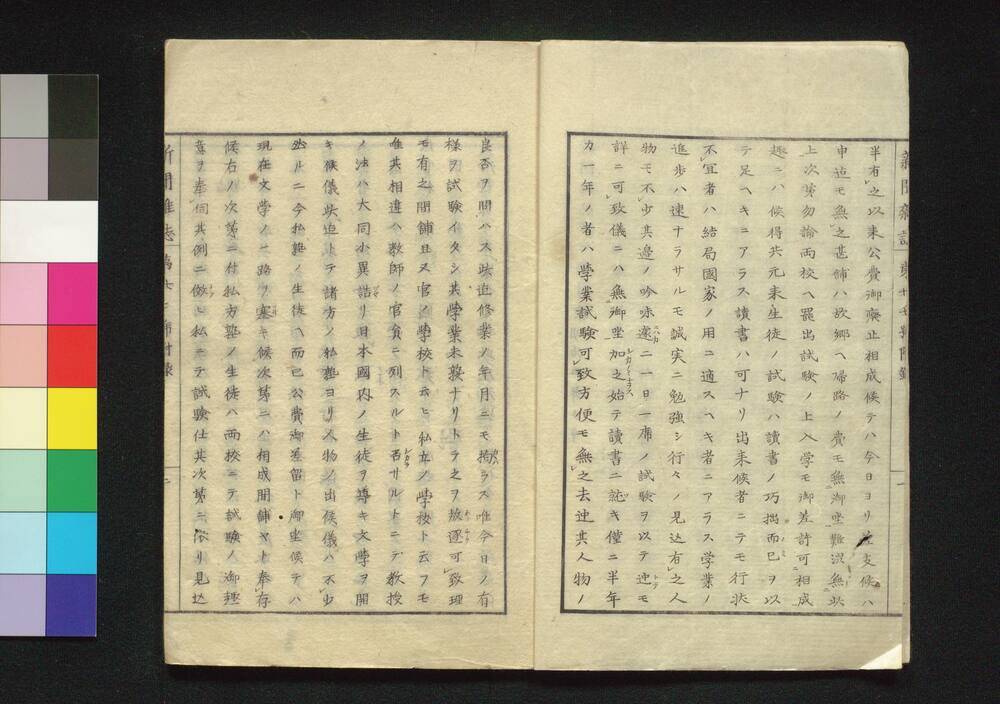 半有之以来公費御廃止相成候テハ今日ヨリ差支候ハ
申迄モ無之甚鋪ハ故郷ヘ帰路ノ費モ無御坐難渋無此
上次第勿論両校ヘ罷出試験ノ上入学モ御差許可相成
趣ニハ候得共元来生徒ノ試験ハ讀書ノ巧拙而已ヲ以
テ足ヘキニアラス讀書ハ可ナリ出来候者ニテモ行状
不宜者ハ結局國家ノ用ニ適スヘキ者ニアラス学業ノ
進歩ハ速ナラサルモ誠実ニ勉強シ行々ノ見込有之人
物モ不少其邉ノ吟味遽ニ一日一席ノ試験ヲ以テ迚モ
詳ニ可致儀ニハ無御坐加之始テ讀書ニ就キ僅ニ半年
カ一年ノ者ハ學業試験可致方便モ無之去迚其人物ノ
良否ヲ問ハス此迄修業ノ年月ニモ拘ラス唯今日ノ有
様ヲ試験イタシ其學業未熟ナリトテ之ヲ放逐可致理
モ有之間鋪且又官ノ學校ト云ヒ私立ノ學校ト云フモ
唯其相違ハ教師ノ官員ニ列スルト否サルトニテ教授
ノ法ハ大同小異詰リ日本國内ノ生徒ヲ導キ文學ヲ開
キ候儀此迄トテ諸方ノ私塾ヨリ人物ノ出候儀ハ不少
然ルニ今私塾ノ生徒ヘ而已公費御差留ト御坐候テハ
現在文学ノ一路ヲ塞キ候次第ニハ相成間鋪ヤト奉存
候右ノ次第ニ付私方塾ノ生徒ハ両校ニテ試験ノ御趣
意ヲ奉伺其例ニ傚ヒ私ニテ試験仕其次第ニ依リ見込